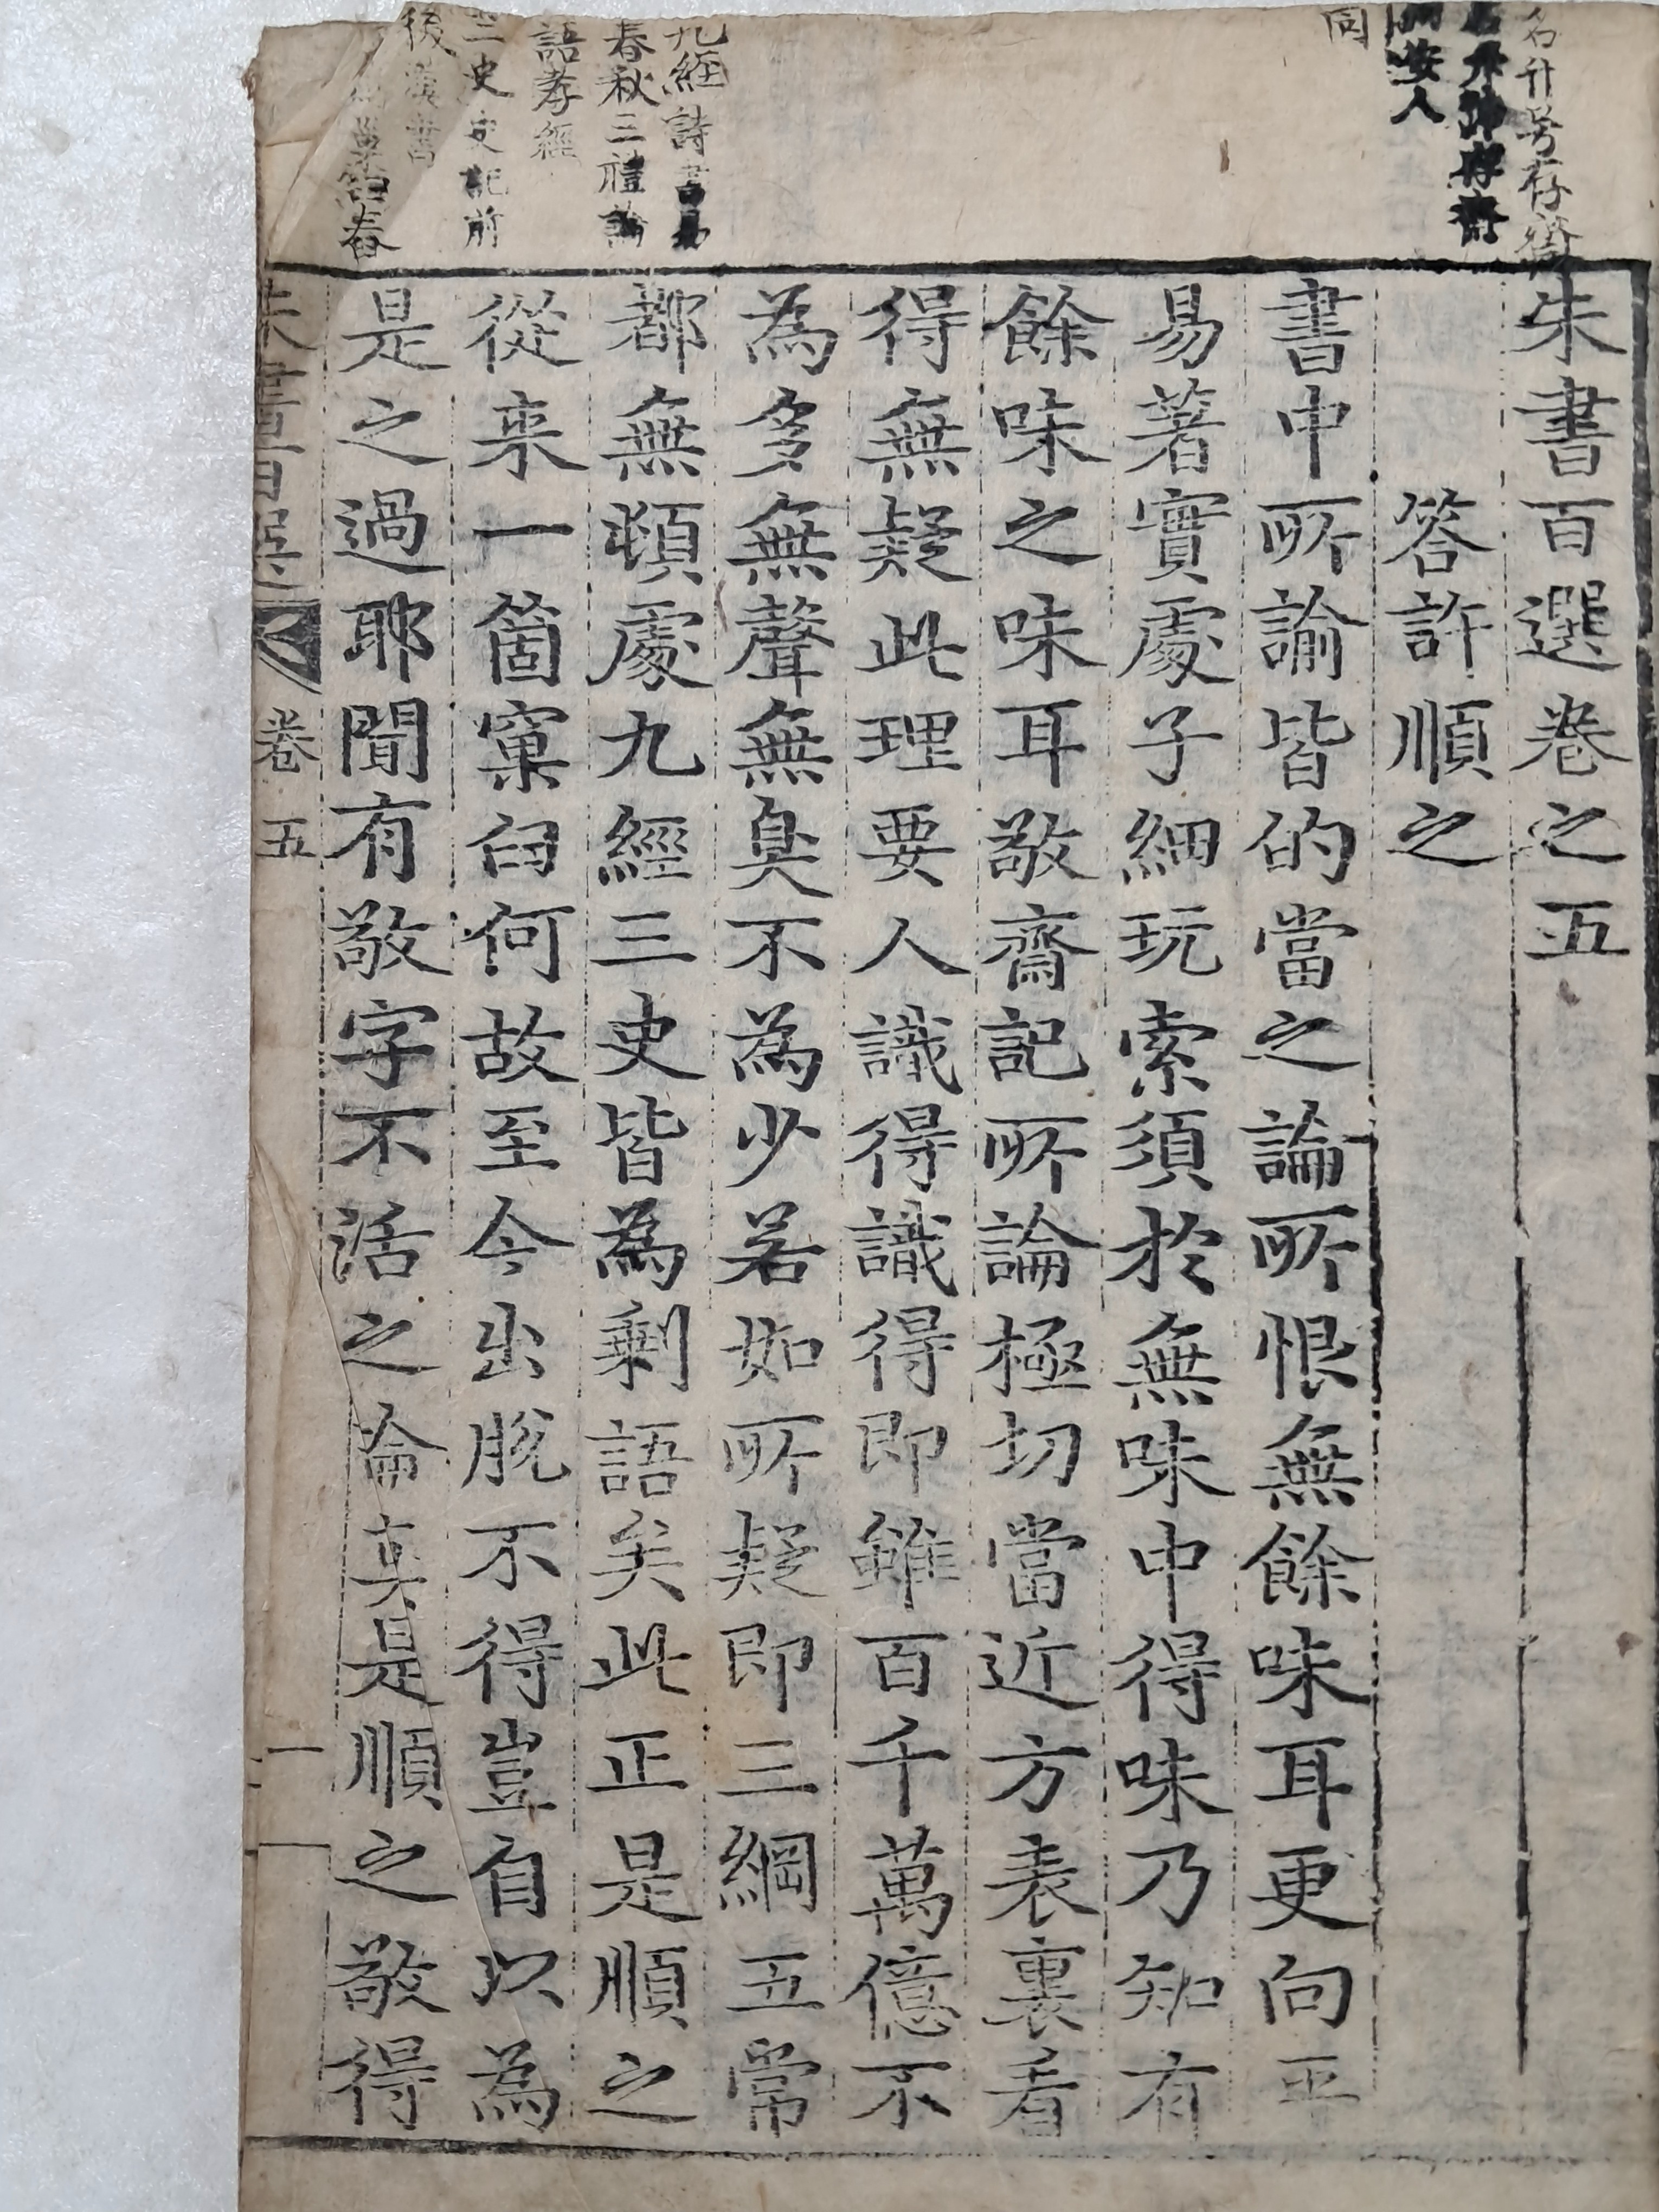 名升号存齋
同安人
同
九經詩書易
春秋三禮論
語孝經
三史史記前
後漢書
朱書百選卷之五
答許順之
書中所諭皆的當之論所恨無餘味耳更向平
易著實處子細玩索須於無味中得味乃知有
餘味之味味耳敬齋記所論極切當近方表裏看
得無疑此理要人識得識得即雖百千萬億不
為多無聲無臭不為少若如所疑即三綱五常
都無頓處九經三史皆為剩語矣此正是順之
從来一箇窠臼何故至今出脫不得豈自以為
是之過耶聞有敬字不活之論莫是順之敬得
朱書百選
卷五
一